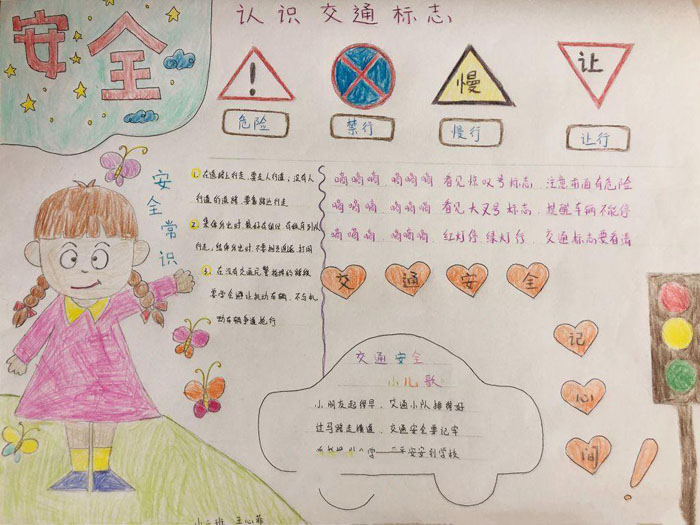 安全
认识交通标志
!
慢
让
危险
禁行
慢行
让行
安全常识
1. 在道路上行走,要走人行道;没有人
行道的道路,要靠路边行走
2. 集体外出时,最好有组织、有秩序列队
行走;结伴外出时,不要相互追逐、打闹
3. 在没有交通民警指挥的路段
要学会避让机动车辆,不与机
动车辆争道抢行
嘀嘀嘀,嘀嘀嘀,看见惊叹号标志,注意前面有危险
嘀嘀嘀,嘀嘀嘀,看见大叉号标志,提醒车辆不能停
嘀嘀嘀,嘀嘀嘀,红灯停绿灯行,交通标志要看清
交通安全
记心间
交通安全
小儿歌
小朋友起得早,交通小队排得好
过马路走横道,交通安全要记牢
平安安到学校
王心菲